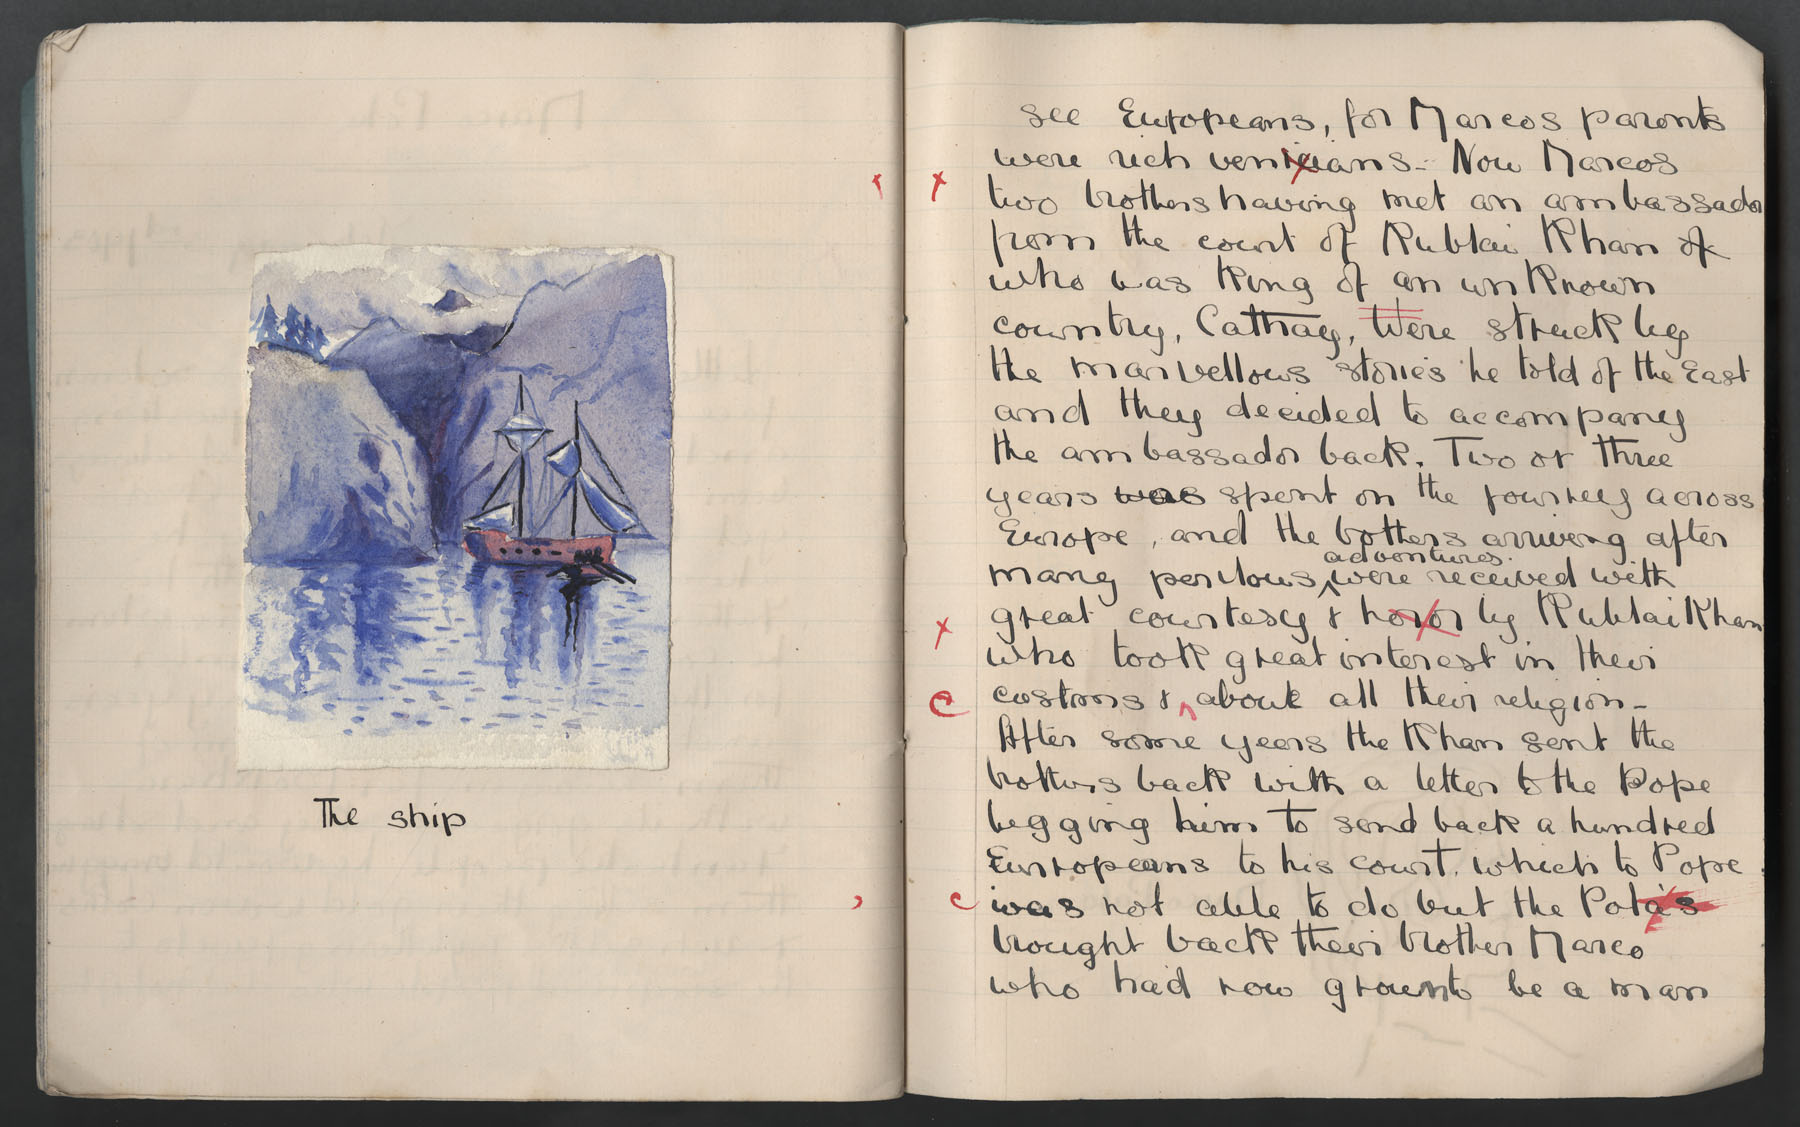 The ship
see Europeans, for Marcos parents
were rich venicians. Now Marcos
two brothers having met an ambassador
from the court of Kublai Khan of
who was King of an unknown
country, Cathay, Were struck by
the marvellous stories he told of the East
and they decided to accompany
the ambassador back. Two or three
years was spent on the journey across
Europe, and the bothers arriving after
adventures
many perilous, were received with
great courtesy & honor by Kublai Khan
who took great interest in their
customs & about all their religion -
After some years the Khan sent the
brothers back with a letter to the Pope
begging him to send back a hundred
Europeans to his court. which to Pope
was not able to do but the Pola's
brought back their brother Marco
who had now grown to be a man